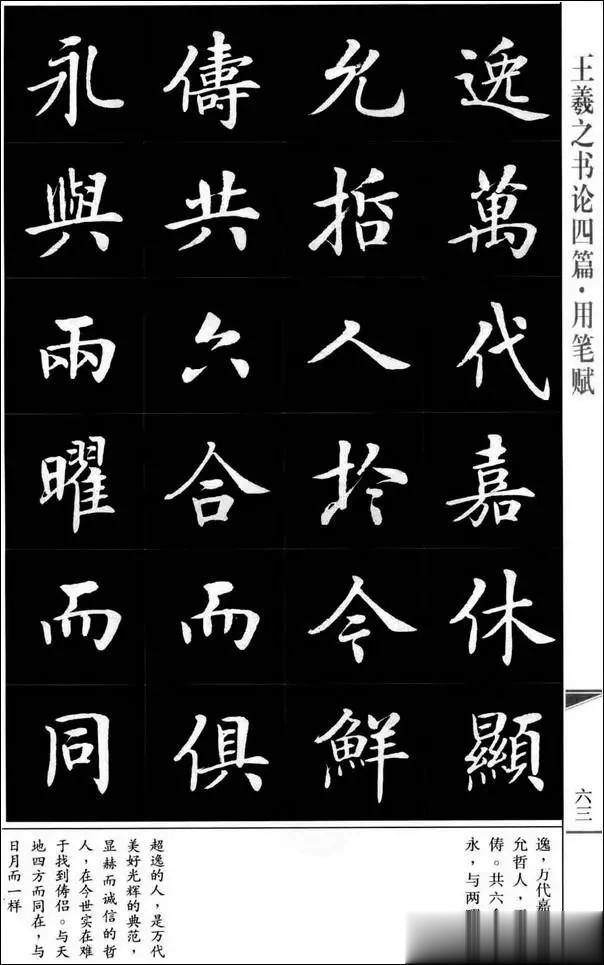 王羲之书论四篇·用笔赋
六三
逸萬代嘉休顯
允哲人於今鮮
儔共六合而俱
永與兩曜而同
逸，万代嘉
允哲人，
俦。共六
永，与两
超逸的人，是万代
美好光辉的典范，
显赫而诚信的哲
人，在今世实在难
于找到俦侣。与天
地四方而同在，与
日月而一样